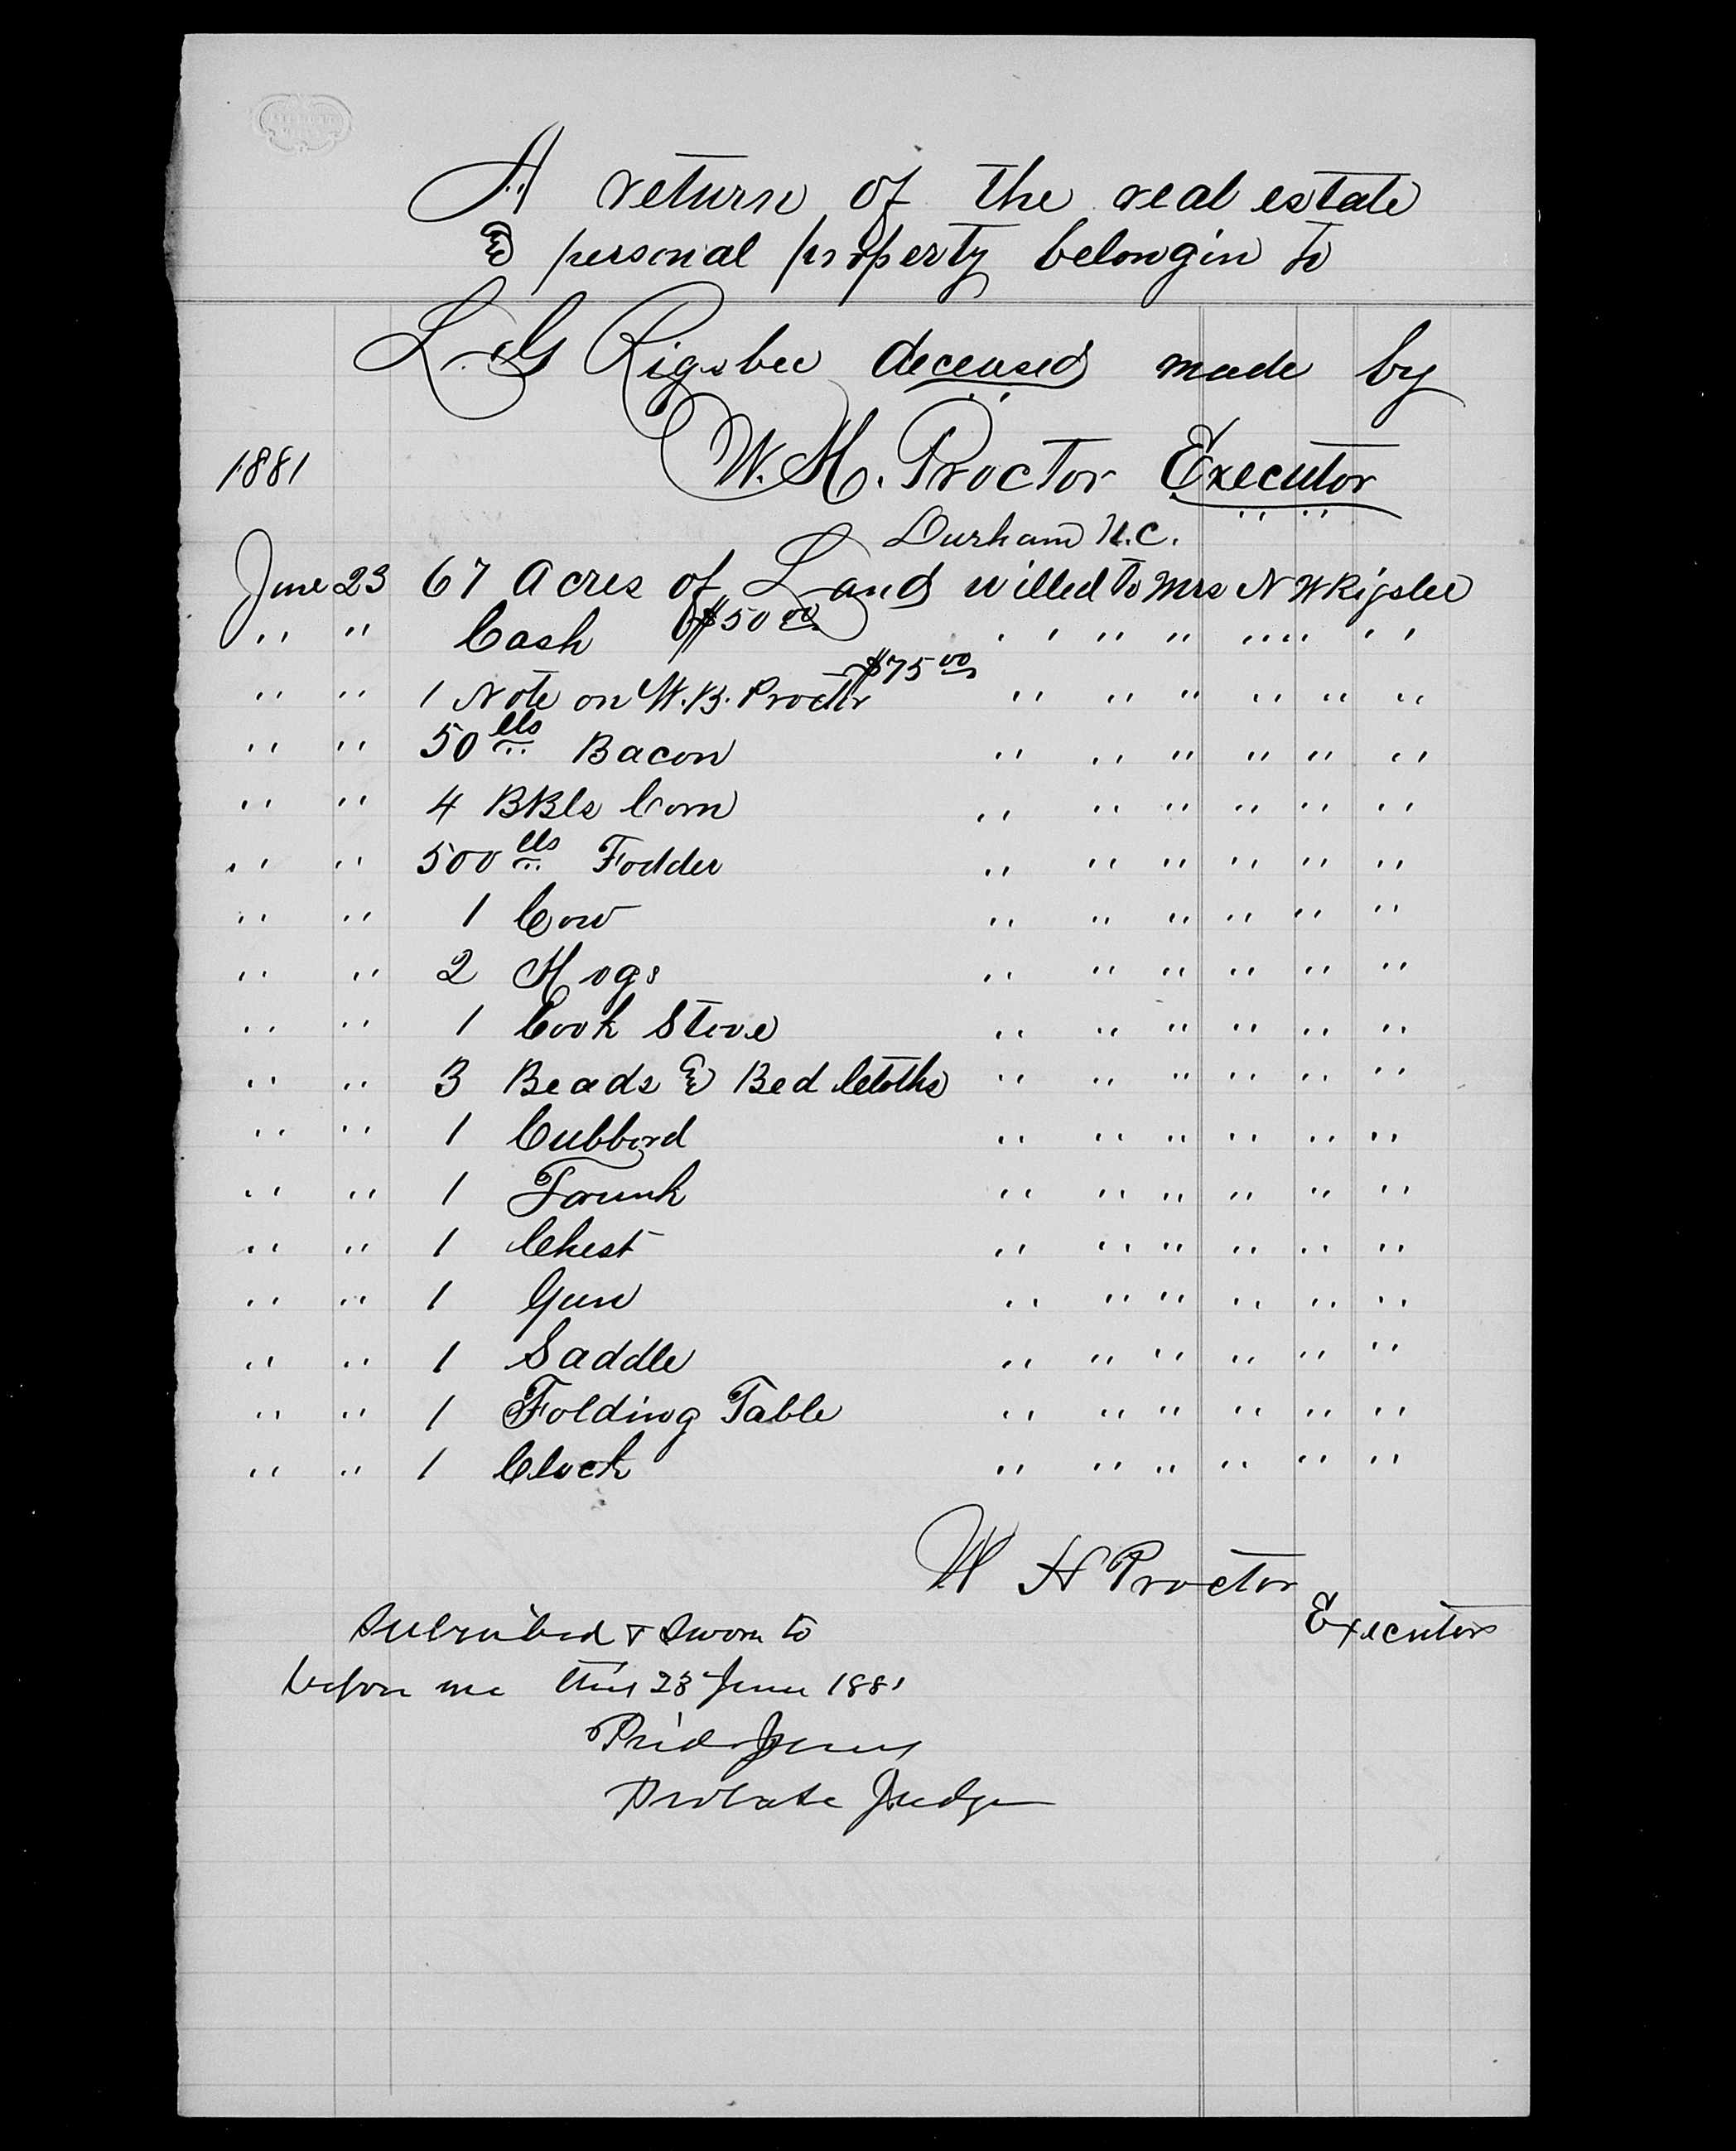 A return of the real estate
& personal property belongin to
L. G Rigsbee deceased made by
1881 W. H. Proctor Executor
Durham N.C.
June 23 67 Acres of Land willed to Mrs N W Rigsbee
" " Cash $50 00 " " " " " "
" " 1 Note on W. B. Proctor $75 00 " " " " " "
" " 50 lbs Bacon " " " " " "
" " 4 BBls Corn " " " " " "
" " 500 lbs Fodder " " " " " "
" " 1 Cow " " " " " "
" " 2 Hogs " " " " " "
" " 1 Cook Stove " " " " " "
" " 3 Beads & Bed Cloths " " " " " "
" " 1 Cubbord " " " " " "
" " 1 Trunk " " " " " "
" " 1 Chest " " " " " "
" " 1 Gun " " " " " "
" " 1 Saddle " " " " " "
" " 1 Folding Table " " " " " "
" " 1 Clock " " " " " "
W H Proctor
Executor
Subscribed & Sworn to
before me this 23 June 1881
Prid Jones
Probate Judge